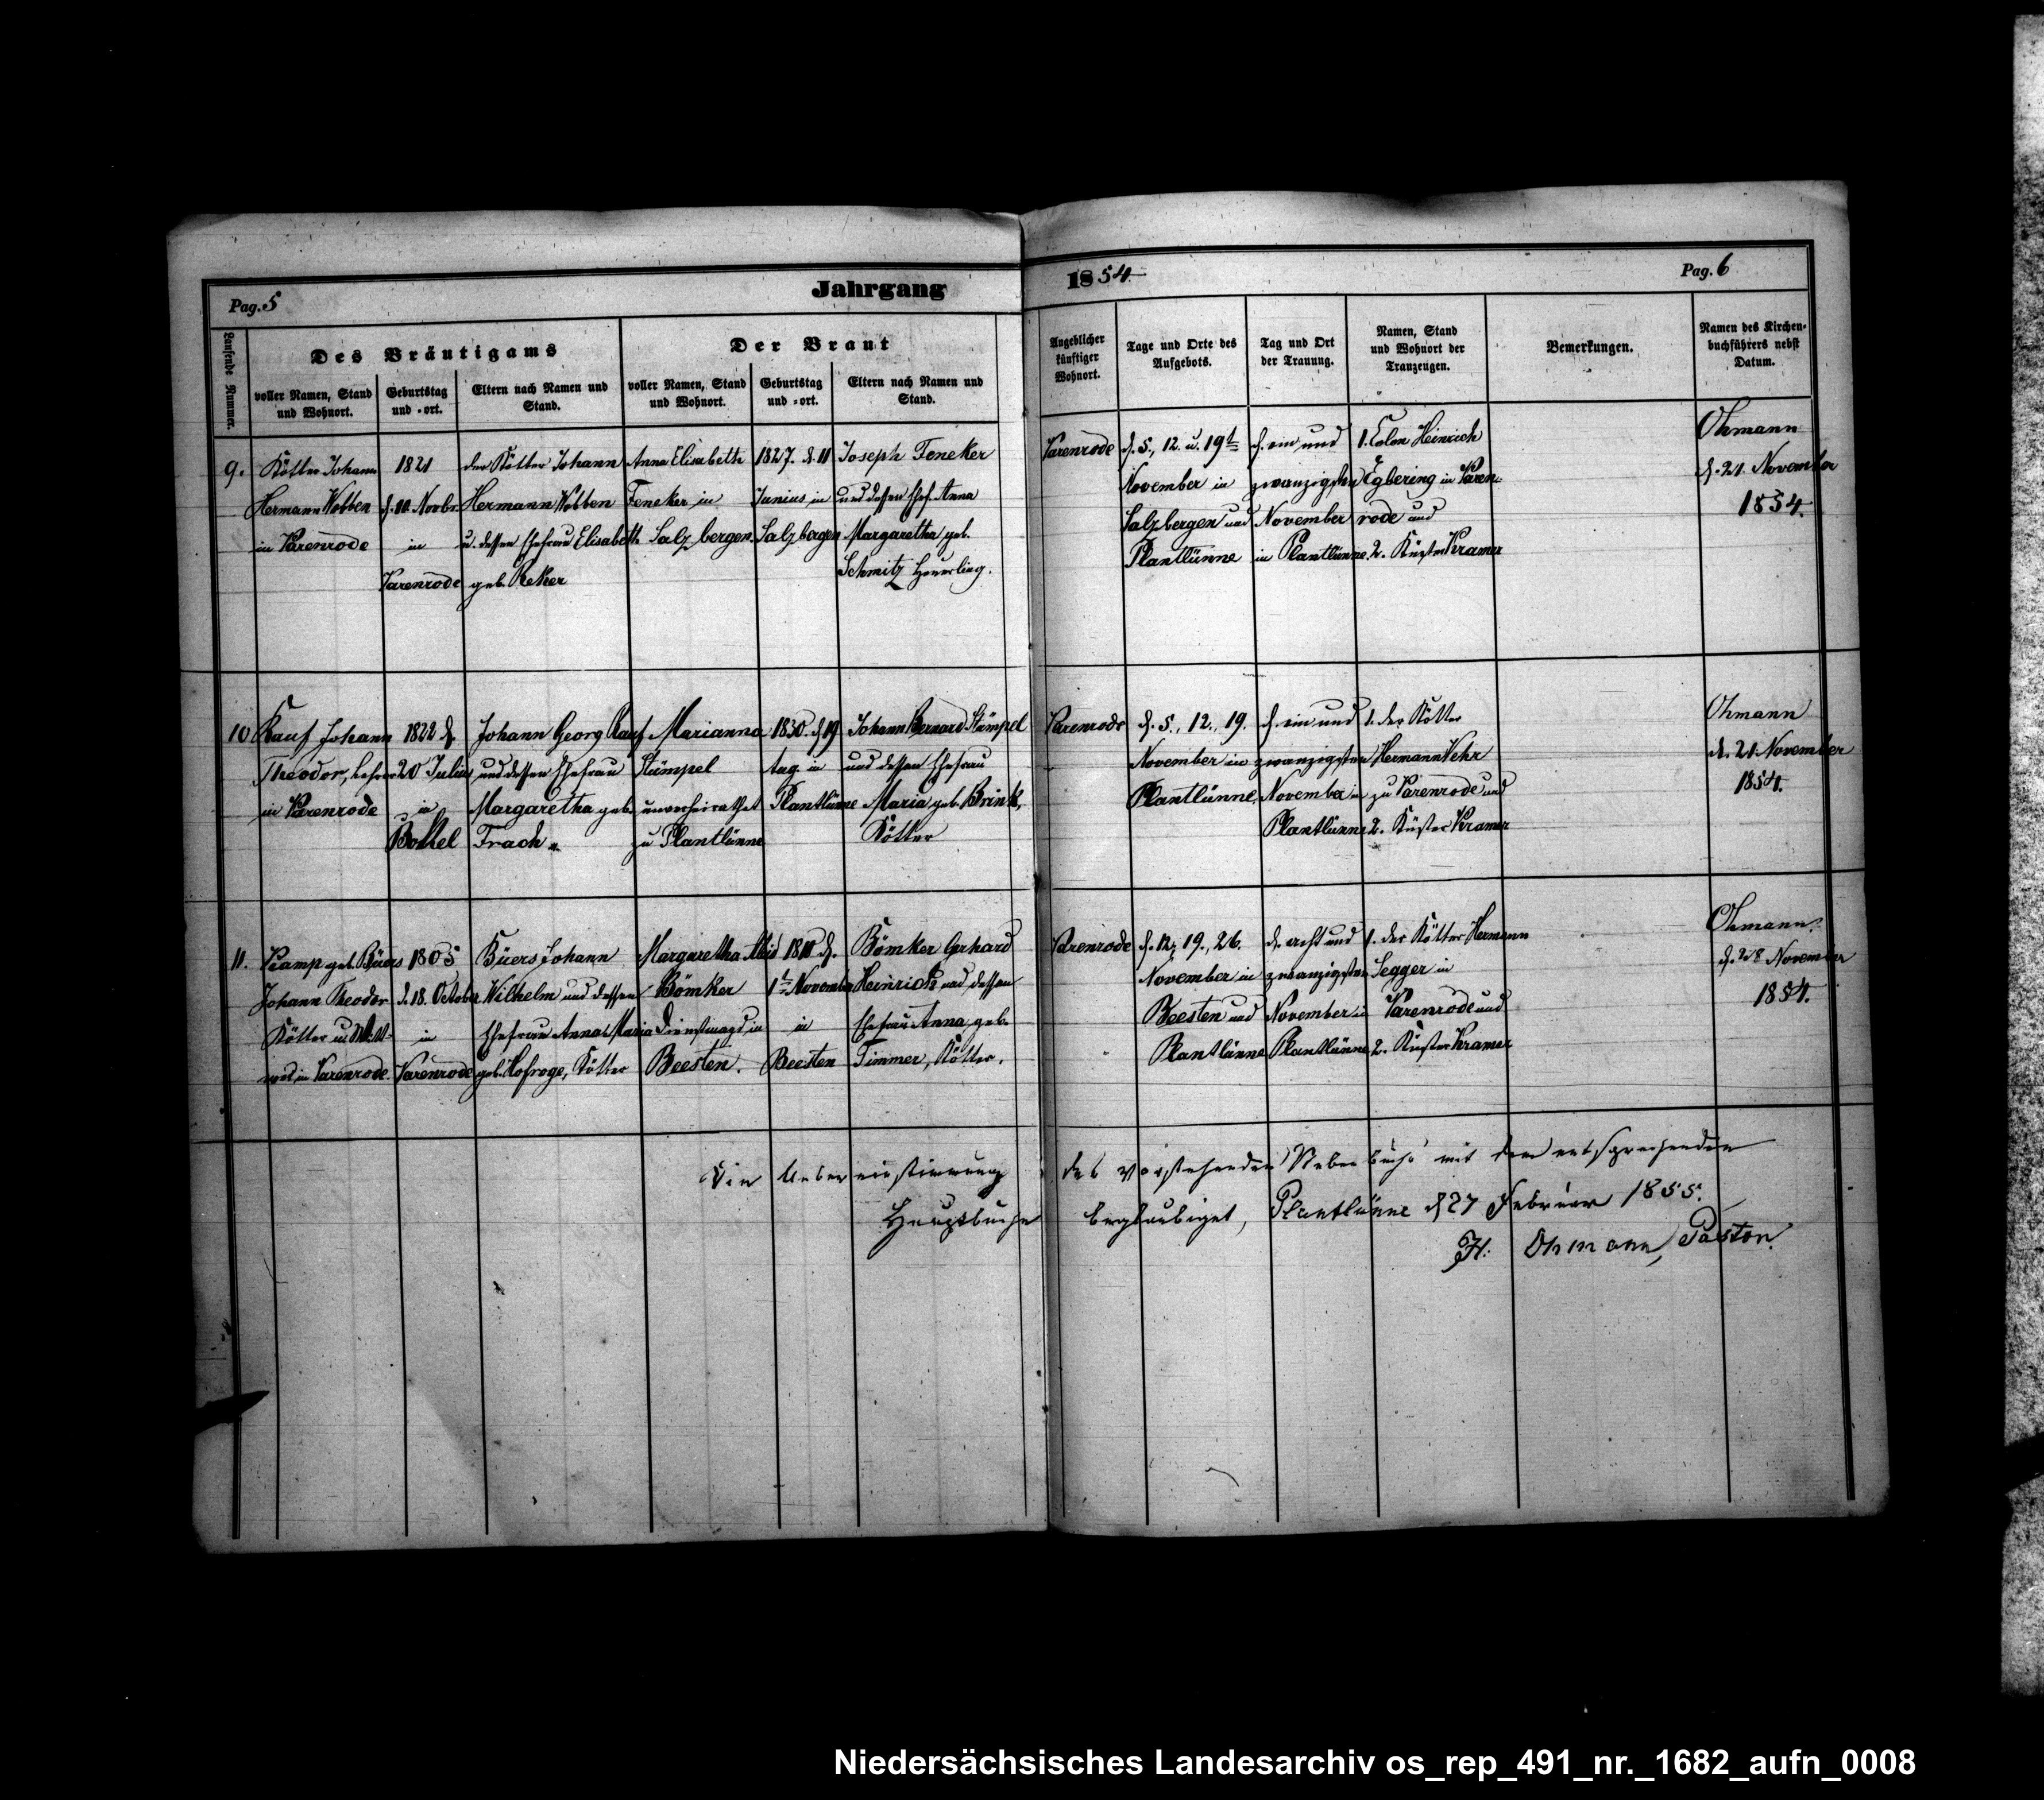 Pag. 5
Jahrgang
1854
Pag. 6
Laufende Nummer.
Des Bräutigams
voller Namen, Stand
und Wohnort.
Geburtstag
und =ort.
Eltern nach Namen und
Stand.
Der Braut
voller Namen, Stand
und Wohnort.
Geburtstag
und =ort.
Eltern nach Namen und
Stand.
Angeblicher
künftiger
Wohnort.
Tage und Orte des
Aufgebots.
Tag und Ort
der Trauung.
Namen, Stand
und Wohnort der
Trauzeugen.
Bemerkungen.
Namen des Kirchen-
buchführers nebst
Datum.
9.
Kötter Johann
Hermann Wobben
in Varenrode
1821
d. 10. Novbr.
in
Varenrode
der Kötter Johann
Hermann Wobben
u. dessen Ehefrau Elisabeth
geb. Reker
Anna Elisabeth
Feneker in
Salzbergen.
1827. d. 11
Junius in
Salzbergen
Joseph Feneker
und dessen Ehef. Anna
Margaretha geb.
Schmitz Heuerling.
Varenrode
d. 5., 12. u. 19t
November in
Salzbergen und
Plantlünne
d. ein und
zwanzigsten
November
in Plantlünne
1. Colon Heinrich
Egbering in Varen
rode und
2. Küster Kramer
Ohmann
d. 21. November
1854.
10
Kauf Johann
Theodor, Lehrer
in Varenrode
1822 d.
20 Julius
in
Johann Georg Kauf
und dessen Ehefrau
Margaretha geb.
Frach
Marianna
Stümpel
unverheirathet
zu Plantlünne
1830. d. 19
in
Plantlünne
Johann Bernard Stümpel
und dessen Ehefrau
Maria geb. Brink,
Kötter
Varenrode
d. 5., 12., 19.
November in
Plantlünne,
d. ein und
zwanzigsten
November in
Plantlünne
1. der Kötter
Hermann Vehr
zu Varenrode und
2. Küster Kramer
Ohmann
d. 21. November
1854.
11.
Kamp geb. Büers
Johann Theodor
Kötter u.
in Varenrode.
1805
d. 18. October
in
Varenrode
Büers Johann
Wilhelm und dessen
Ehefrau Anna Maria
geb. Hofroge, Kötter
Margaretha
Bömker
Dienstmagd in
Beesten.
1810 d.
1t November
in
Beesten
Bömker Gerhard
Heinrich und dessen
Ehefrau Anna geb.
Timmer, Kötter.
Varenrode
d. 12., 19., 26.
November in
Beesten und
Plantlünne
d. acht und
zwanzigsten
November in
Plantlünne
1. der Kötter Hermann
Segger in
Varenrode und
2. Küster Kramer
Ohmann.
d. 28 November
1854.
Die Uebereinstimmung des vorstehenden Nebenbuchs mit dem entsprechenden
Hauptbuche beglaubiget, Plantlünne d 27 Februar 1855.
H. Ohmann, Pastor.
Niedersächsisches Landesarchiv os_rep_491_nr._1682_aufn_0008